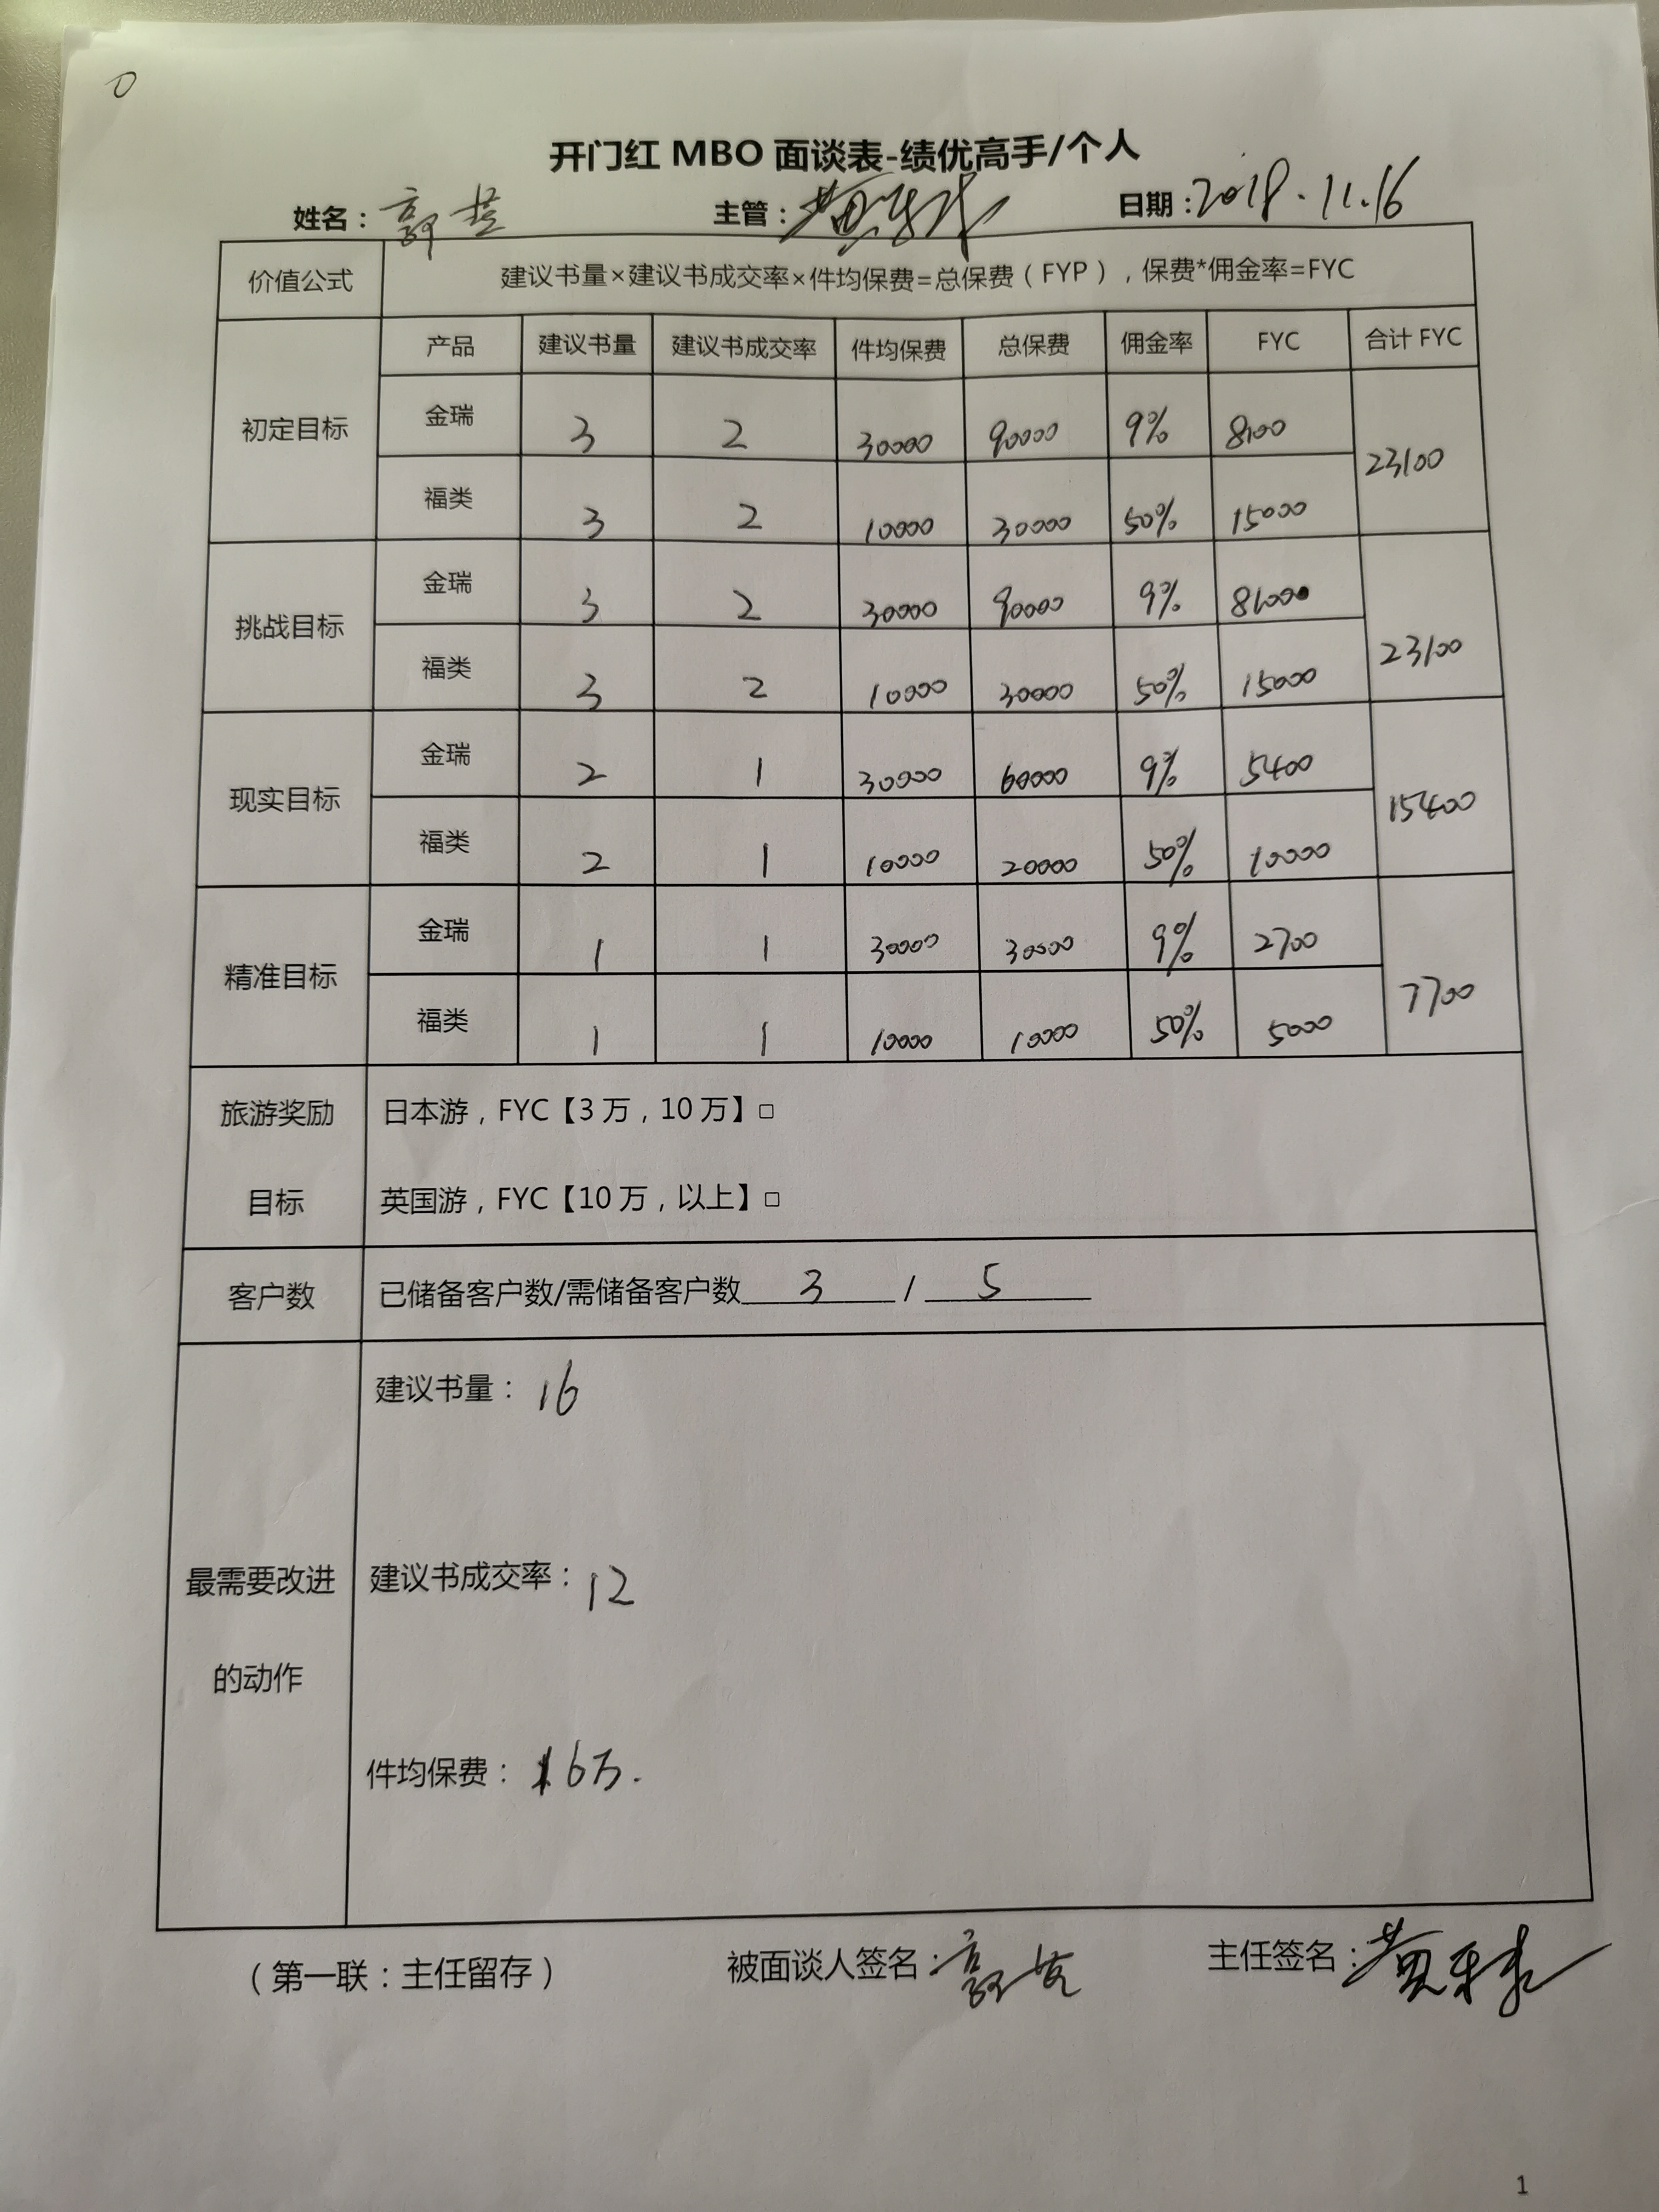 开门红 MBO 面谈表-绩优高手/个人
姓名： 主管： 日期：2018.11.16
价值公式 建议书量×建议书成交率×件均保费=总保费（FYP），保费*佣金率=FYC
产品 建议书量 建议书成交率 件均保费 总保费 佣金率 FYC 合计 FYC
初定目标 金瑞 3 2 30000 90000 9% 8100 23100
福类 3 2 10000 30000 50% 15000
挑战目标 金瑞 3 2 30000 90000 9% 23100
福类 3 2 10000 30000 50% 15000
现实目标 金瑞 2 1 30000 60000 9% 5400 15400
福类 2 1 10000 20000 50% 10000
精准目标 金瑞 1 1 30000 30000 9% 2700 7700
福类 1 1 10000 10000 50% 5000
旅游奖励 日本游，FYC【3 万，10 万】□
目标 英国游，FYC【10 万，以上】□
客户数 已储备客户数/需储备客户数 3 / 5
建议书量：16
最需要改进 建议书成交率：12
的动作
件均保费：6万.
（第一联：主任留存） 被面谈人签名： 主任签名：
1